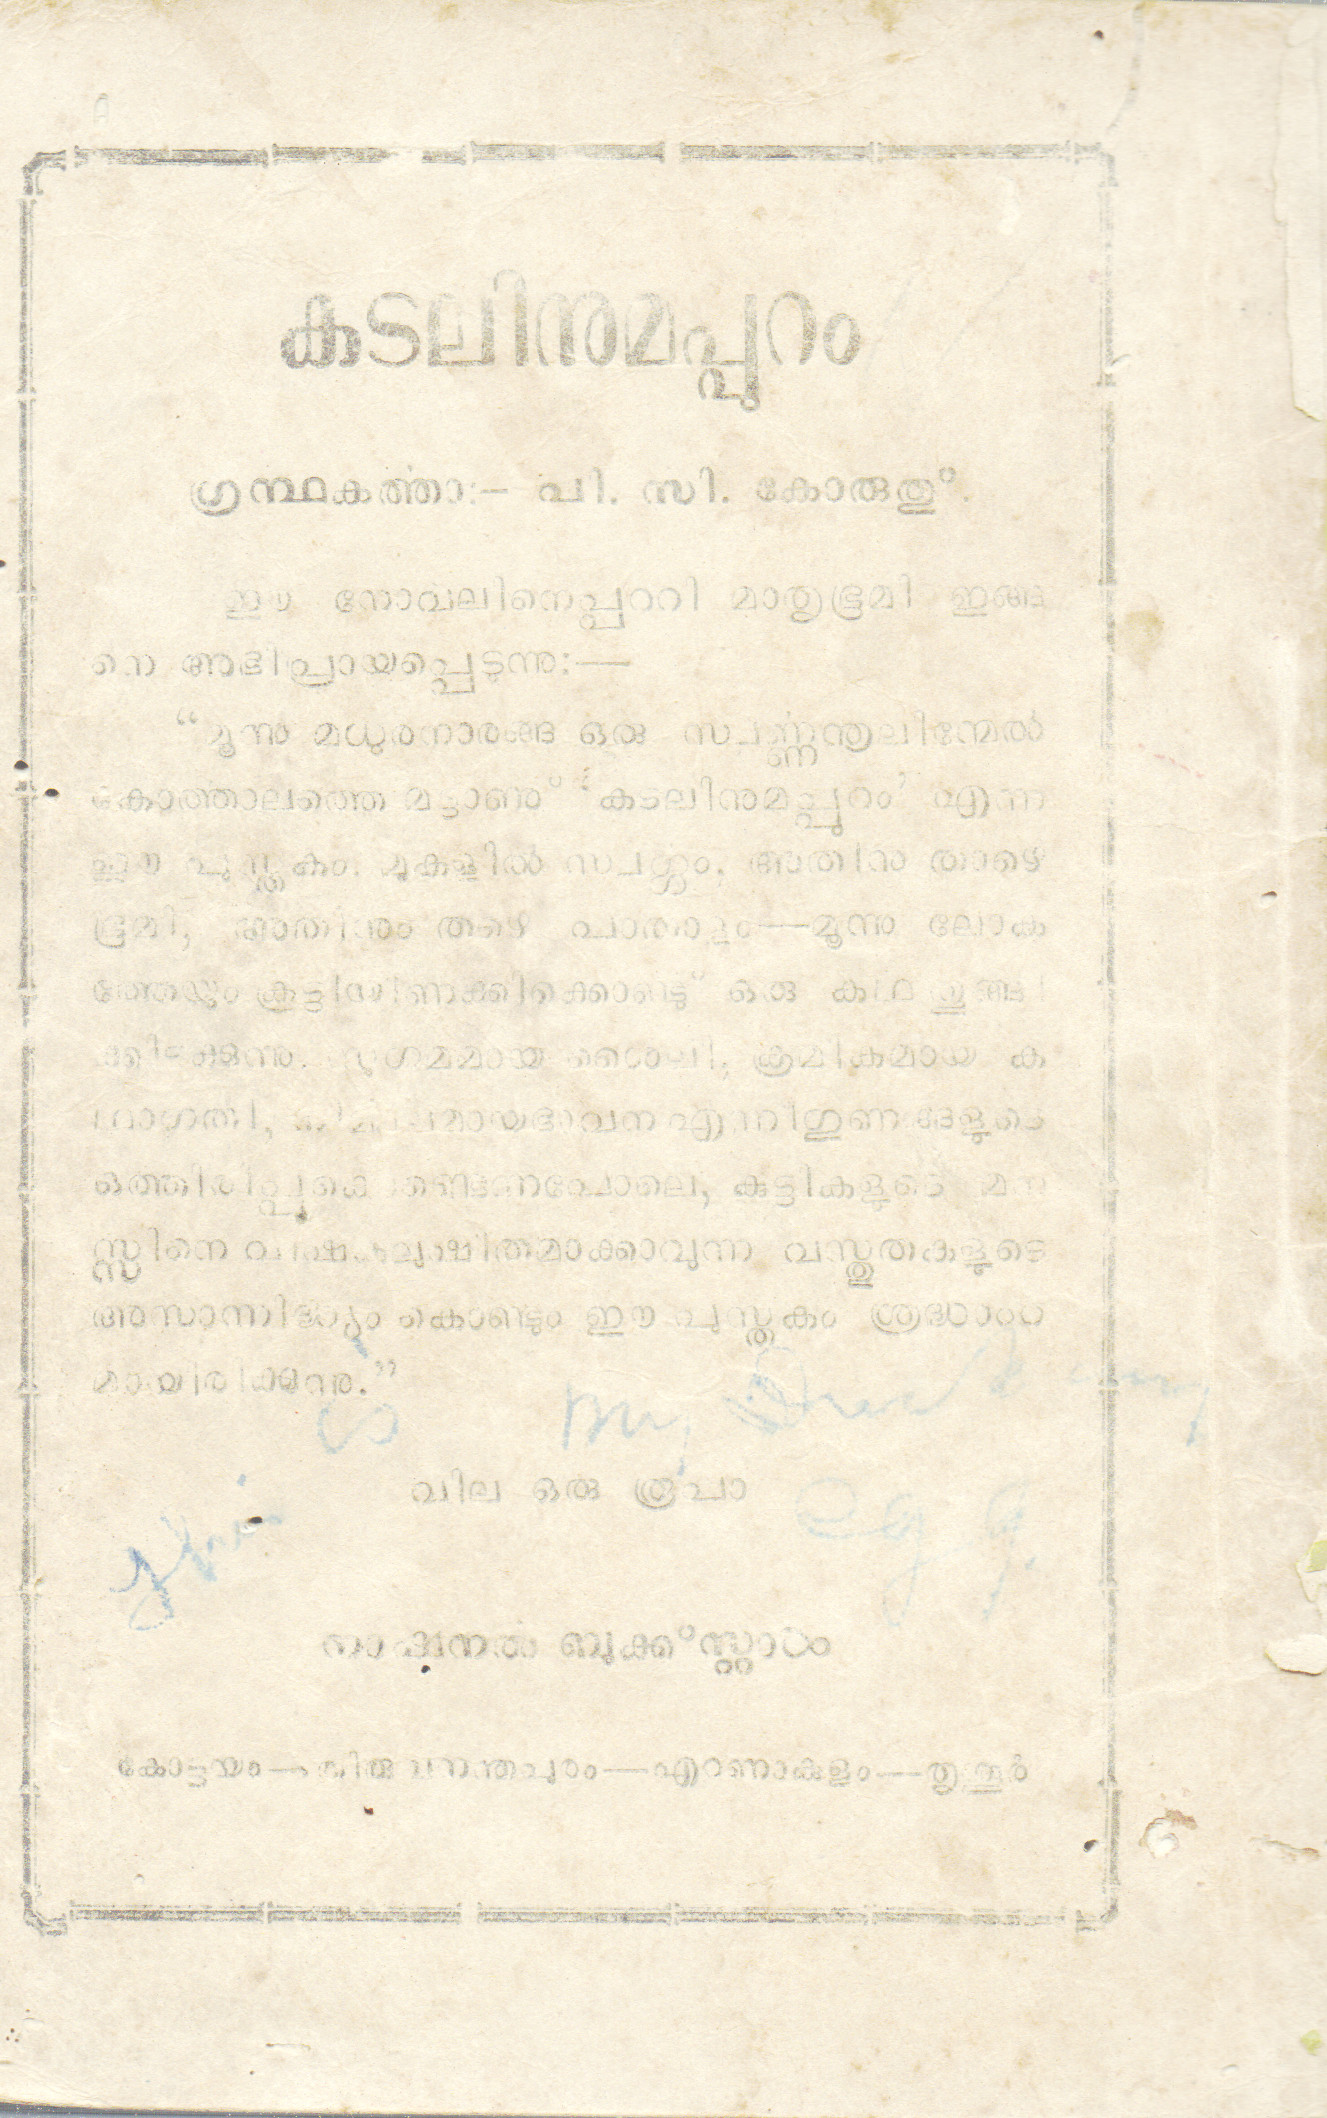 കടലിനുമപ്പുറം
ഗ്രന്ഥകർത്താ:— പി. സി. കോരുതു്.
ഈ നോവലിനെപ്പററി മാതൃഭൂമി ഇങ്ങ
നെ അഭിപ്രായപ്പെടുന്നു:—
“മൂന്നു മധുരനാരങ്ങ ഒരു സ്വർണ്ണനൂലിന്മേൽ
കോർത്താലത്തെ മട്ടാണു് ‘കടലിനുമപ്പുറം’ എന്ന
ഈ പുസ്തകം. മുകളിൽ സ്വർഗ്ഗം, അതിനു താഴെ
ഭൂമി, അതിനും താഴെ പാതാളം—മൂന്നു ലോക
ത്തേയും കൂട്ടിയിണക്കിക്കൊണ്ടു് ഒരു കഥ
സുഗമമായ ശൈലി, ക്രമികമായ ക
ഥാഗതി, ഭാവന എന്നീ ഗുണങ്ങളുടെ
കുട്ടികളുടെ മന
സ്സിനെ വസ്തുതകളുടെ
അസാന്നിദ്ധ്യം കൊണ്ടും ഈ പുസ്തകം ശ്രദ്ധാർഹ
മായിരിക്കുന്നു.”
My
വില ഒരു രൂപാ
നാഷനൽ ബുക്ക്സ്റ്റാൾ
കോട്ടയം—തിരുവനന്തപുരം—എറണാകുളം—തൃശൂർ